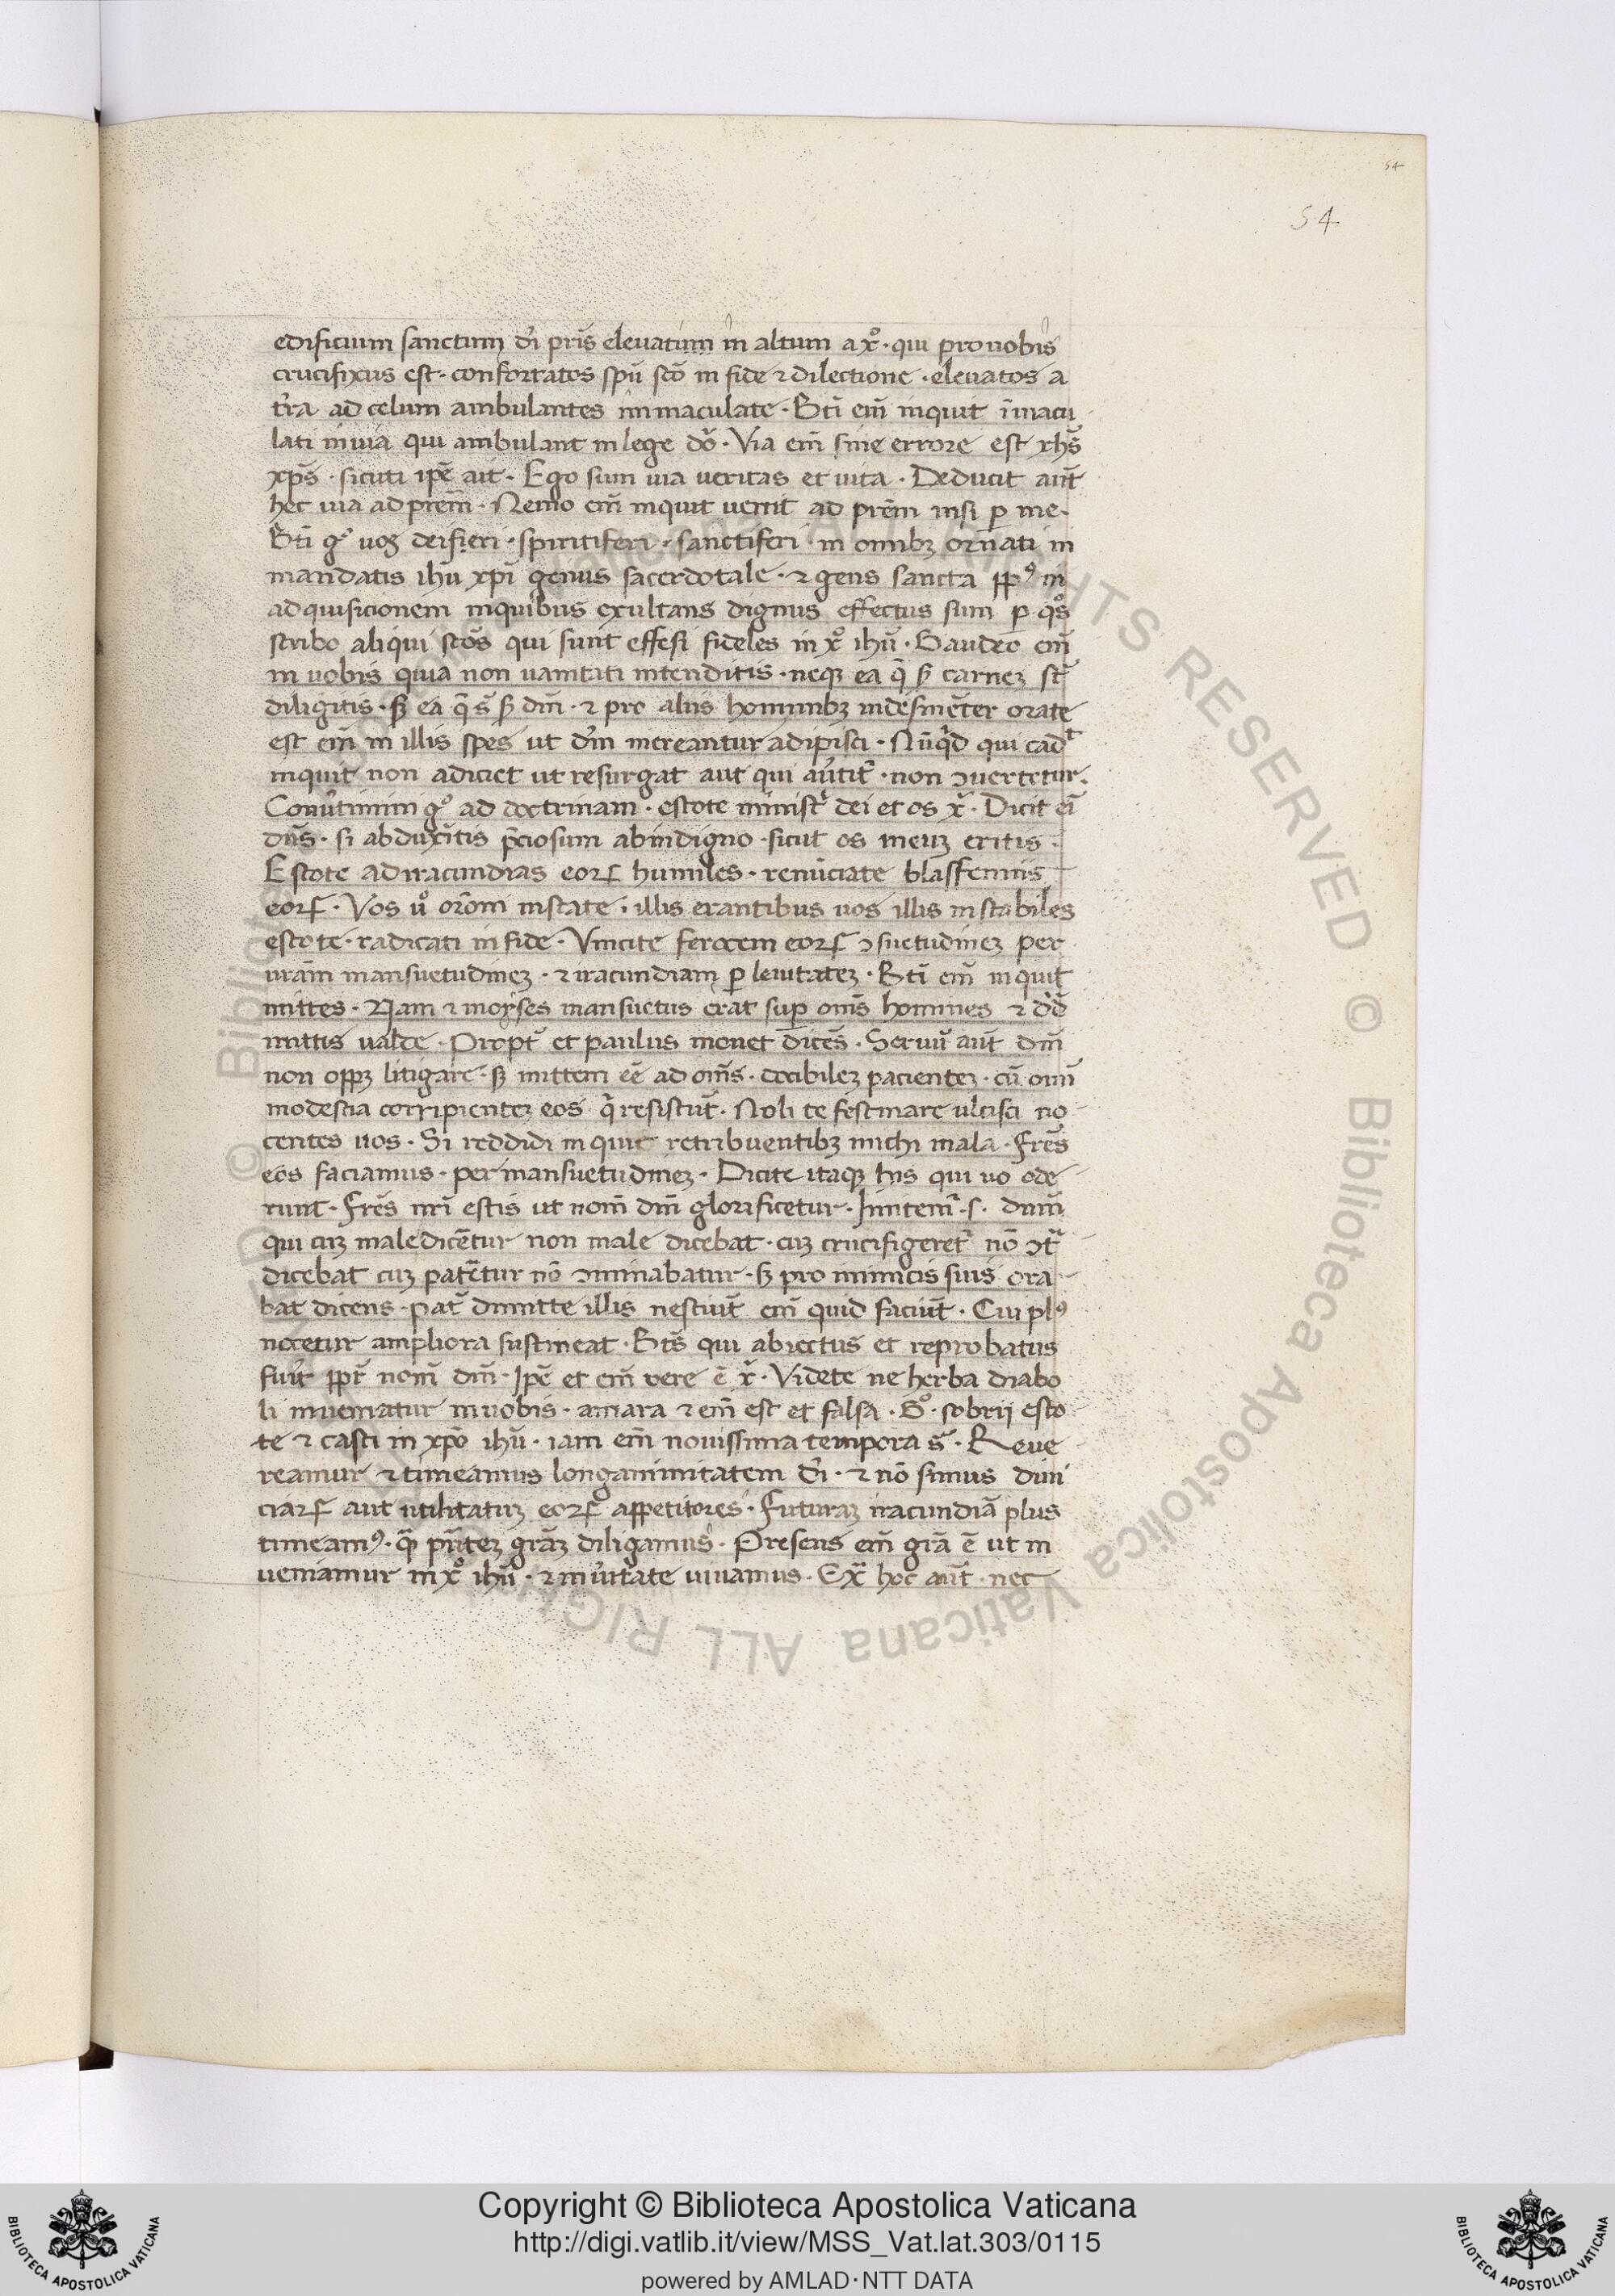 54
54
edificium sanctum dī pris̄ elevatum in altum a xō · qui pro nobis
crucifixus est · confortatos spū scō in fide ⁊ dilectione · elevatos a
tr̄a ad celum ambulantes immaculate · Bti em̄ inquit īmacu
lati in via qui ambulant in lege dō · Via em̄ sine errore est yhs̄
xps̄ · sicuti ipē ait · Ego sum via veritas et vita · Deducit aut̄
hec via ad prem̄ · Nemo em̄ inquit venit ad prēm nisi ꝑ me ·
Bti gͦ vos deiferi · spiritiferi · sanctiferi · in omnibꝫ ornati in
mandatis ihū xpī genus sacerdotale · ⁊ gens sancta ppꝰ in
adquisicionem in quibus exultans dignus effectus sum ꝑ qͦs
scribo aliqui scōs qui sunt effesi fideles in xͦ ihū · Gaudeo em̄
in vobis quia non vanitati intenditis · neqꝫ ea q̄ ẜ carneꝫ st̄
diligitis · sꝫ ea q̄ s̄ ẜ dm̄ · ⁊ pro aliis hominibꝫ indesinēter orate
est em̄ in illis spes ut dm̄ mereantur adipisci · Nūqd qui cadᵗ
inquit non adiciet ut resurgat aut qui av̄titr̄ · non ꝯvertetur ·
Conv̄timini gͦ ad doctrinam · estote ministr̄ dei et os xͥ · Dicit em̄
dn̄s · si abduxītis p̄ciosum ab indigno · sicut os meuꝫ eritis ·
Estote ad iracundias eorꝝ humiles · renūciate blasfemiis
eorꝝ · Vos vͦ orōm instate · illis erantibus vos illis instabiles
estote · radicati in fide · Vincite ferocem eorꝝ ꝯsuetudineꝫ per
vrām mansuetudineꝫ · ⁊ iracundiam ꝑ levitateꝫ · Bti em̄ inquit
mittes · Nam ⁊ moyses mansuetus erat suꝑ oms̄ homines ⁊ dd̄
mittis valde · Propt̄ et paulus monet dicēs · Servū aut̄ dm̄
non oppꝫ litigare · sꝫ mittem eē ad omn̄s · docibileꝫ pacienteꝫ · cū omī
modestia corripienteꝫ eos q̄ resistut̄ · Noli te festinare ulcisci no
centes vos · Si reddidi inquit retribuentibꝫ michi mala · Frēs
eōs faciamus · per mansuetudineꝫ · Dicite itaqꝫ his qui vo ode
runt · Frēs nrī estis ut nom̄ dm̄ glorificetur · Imitemͬ · s · dnm̄
qui cuꝫ maledicētur non male dicebat · cuꝫ crucifigeretͬ nō ꝯtͣ
dicebat cuꝫ patētur nō ꝯminabatur · sꝫ pro inimicis suis ora
bat dicens · patͬ dimitte illis nesciut̄ em̄ quid faciut̄ · Cui plꝰ
nocetur ampliora sustineat · Bt̄s qui abiectus et reprobatus
fuīt ppt̄ nom̄ dm̄ · Ipē et em̄ vere ē xͥ · Videte ne herba diabo
li inveniatur in vobis · amara ⁊ em̄ est et falsa · Gͦ · sobrij esto
te ⁊ casti in xpō ihū · iam em̄ novissima tempora s̄ · Reve
reamur ⁊ timeamus longanimitatem dī · ⁊ nō simus divi
ciarꝝ aut utilitatuꝫ eorꝝ appetitores · Futuraꝫ iracundiā plus
timeamꝰ · qͣ pn̄teꝫ grāꝫ diligamus · Presens em̄ grā ē ut in
veniamur in xͦ ihū · ⁊ in v̄itate vivamus · Extͣ hoc aut̄ · nec
Copyright © Biblioteca Apostolica Vaticana
http://digi.vatlib.it/view/MSS_Vat.lat.303/0115
powered by AMLAD·NTT DATA